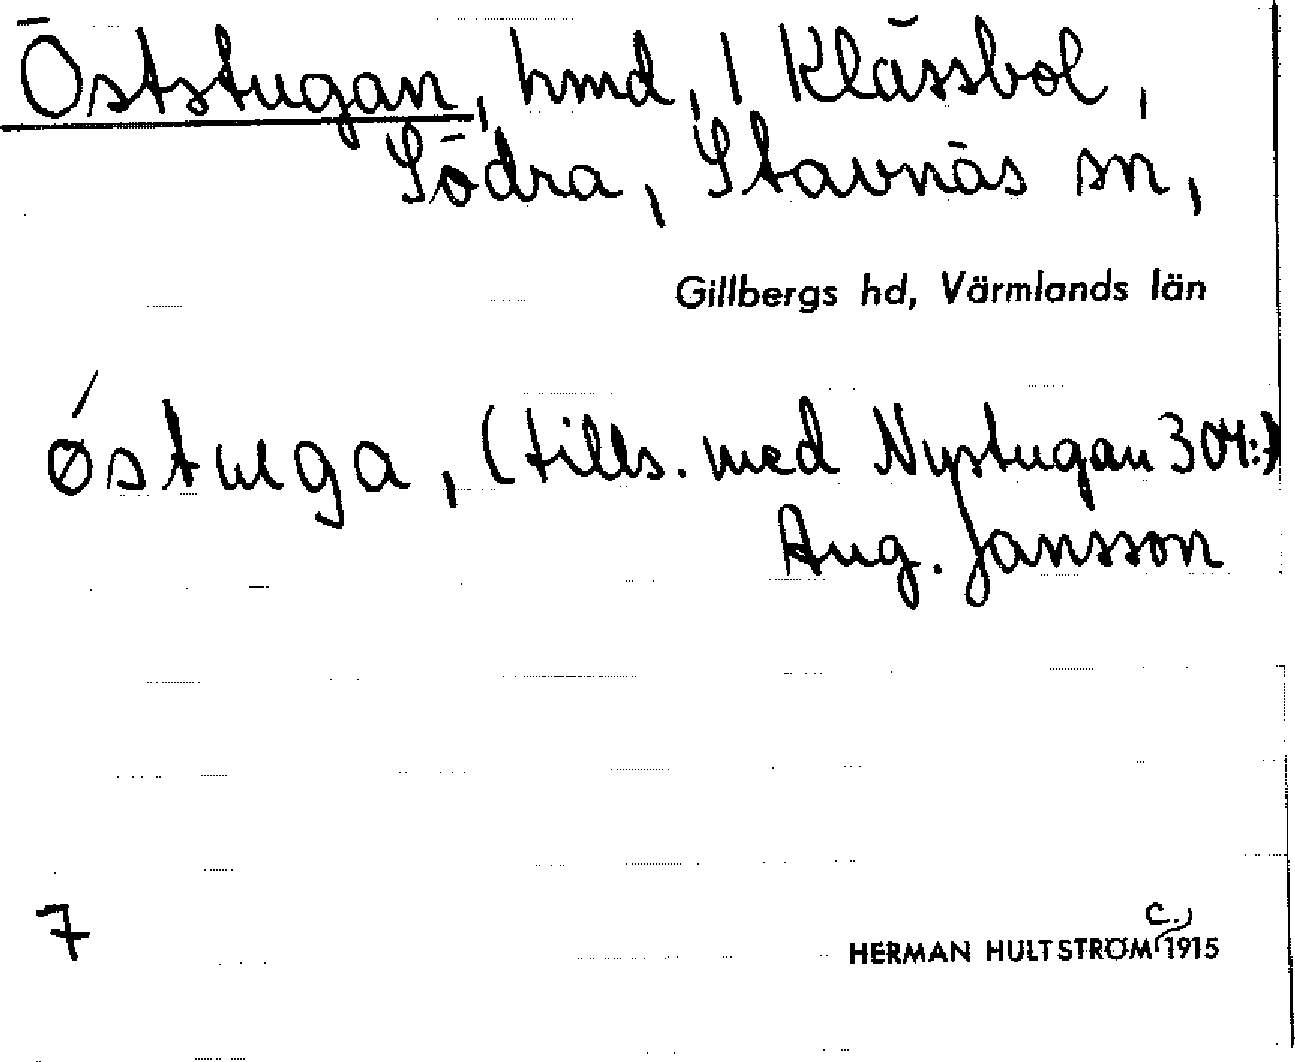 Öststugan, hmd, 1 Klässbol,
Södra, Stavnäs sn,
Gillbergs hd, Värmlands län
östuga, (tills. med Nystugan 304:)
Aug. Jansson
7
c.
HERMAN HULTSTRÖM 1915